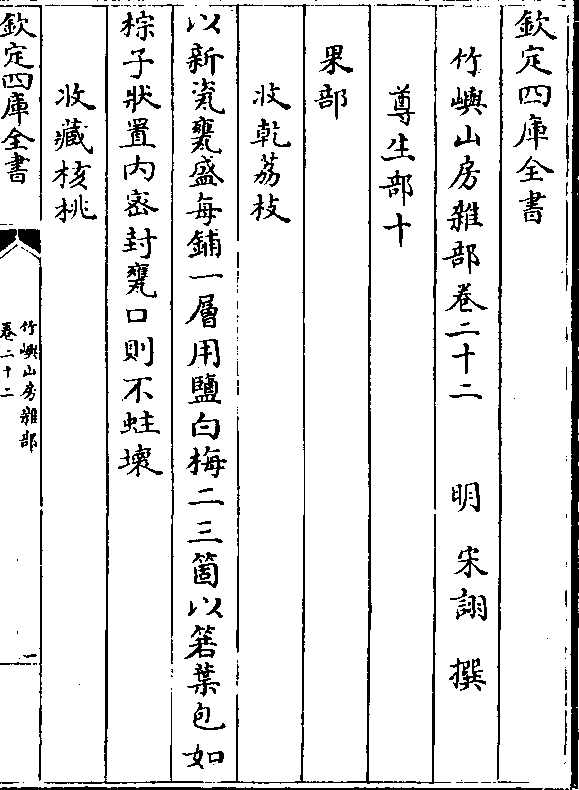 欽定四庫全書
竹嶼山房雜部卷二十二　明　宋詡　撰
尊生部十
果部
收乾荔枝
以新瓷甕盛每鋪一層用鹽白梅二三箇以箬葉包如
粽子狀置内密封甕口則不蛀壞
收藏核桃
欽定四庫全書
竹嶼山房雜部
卷二十二
一